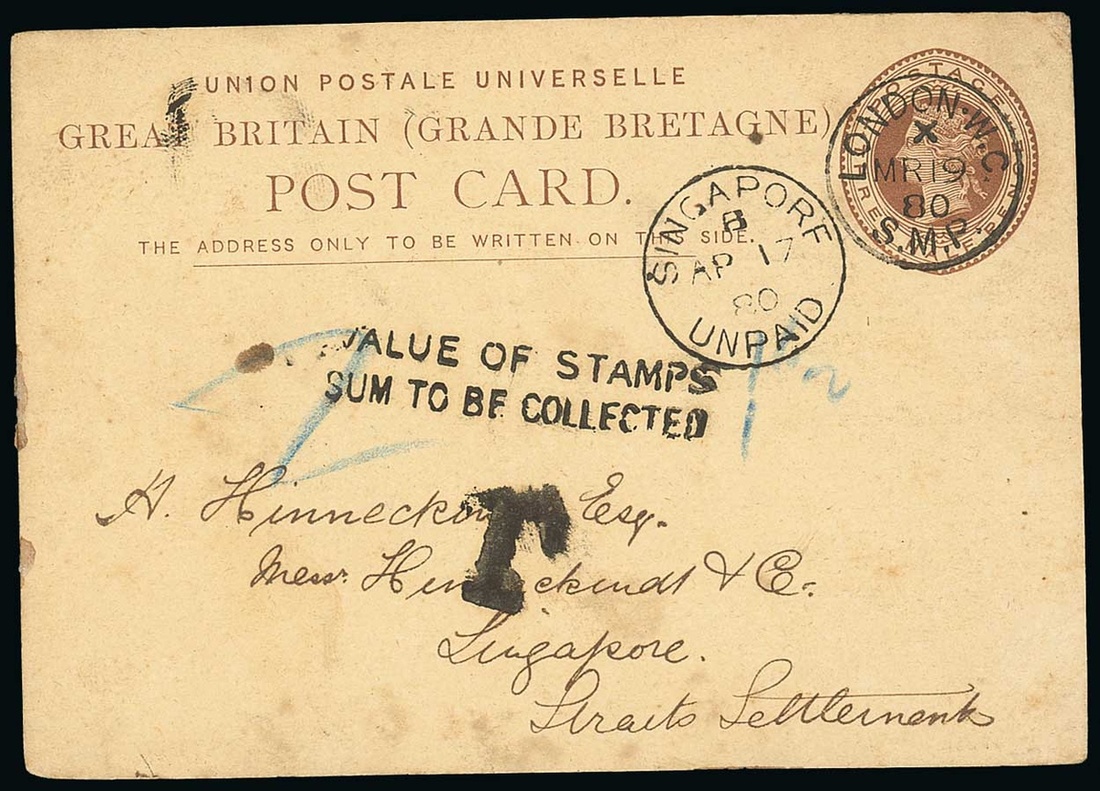 UNION POSTALE UNIVERSELLE
GREAT BRITAIN (GRANDE BRETAGNE)
POST CARD.
THE ADDRESS ONLY TO BE WRITTEN ON THIS SIDE.
POSTAGE
LONDON·W.C.
X
MR19
80
S.M.P.
SINGAPORE
B
AP 17
80
UNPAID
VALUE OF STAMPS
SUM TO BE COLLECTED
T
H. Hinneckindt Esq.
Messr. Hinneckindt & Co.
Singapore.
Straits Settlements